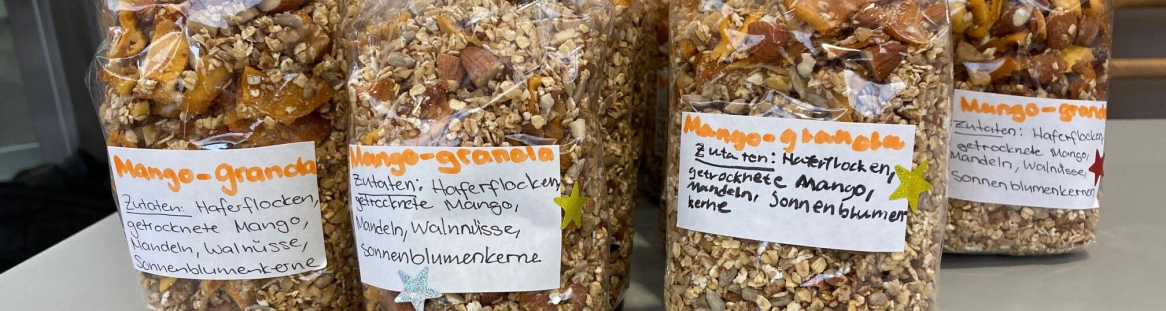 Mango-granola
Zutaten: Haferflocken,
getrocknete Mango,
Mandeln, Walnüsse,
Sonnenblumenkerne
Mango-granola
Zutaten: Haferflocken,
getrocknete Mango,
Mandeln, Walnüsse,
Sonnenblumenkerne
Mango-granola
Zutaten: Haferflocken,
getrocknete Mango,
Mandeln, Sonnenblumen
kerne
Mango-granola
Zutaten: Haferflocken,
getrocknete Mango,
Mandeln, Walnüsse,
Sonnenblumenkerne